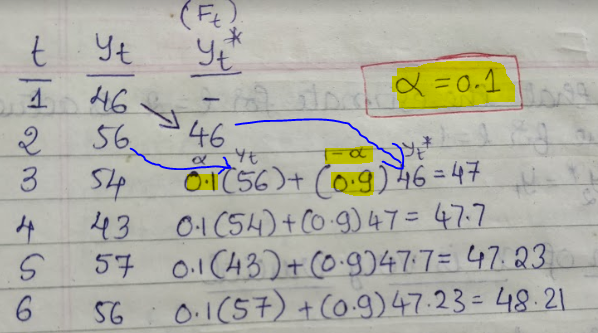 (Ft)
t yt yt*
1 46 -
α = 0.1
2 56 46
α yt 1-α yt*
3 54 0.1(56)+(0.9)46=47
4 43 0.1(54)+(0.9)47=47.7
5 57 0.1(43)+(0.9)47.7=47.23
6 56 0.1(57)+(0.9)47.23=48.21